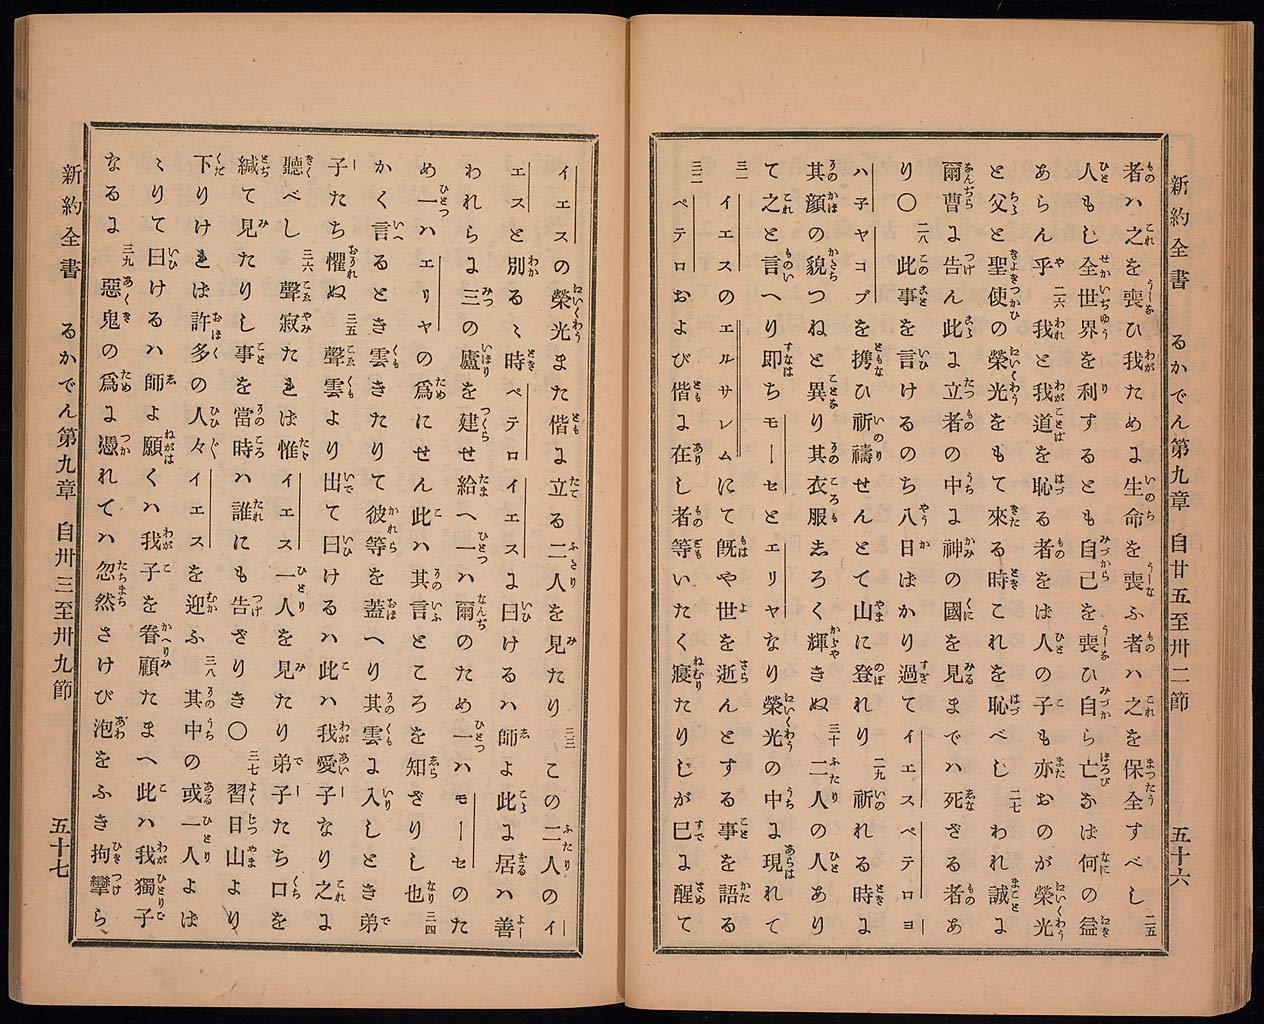 新約全書　るかでん第九章　自廿五至卅二節　五十六
者ハ之を喪ひ我ためよ生命を喪ふ者ハ之を保全すべし二五
人もし全世界を利するとも自己を喪ひ自ら亡なば何の益
あらん乎二六我と我道を恥る者をば人の子も亦おのが榮光
と父と聖使の榮光をもて來る時これを恥べし二七われ誠よ
爾曹よ告ん此よ立者の中よ神の國を見までハ死ざる者あ
り〇二八此事を言けるのち八日ばかり過てイエスペテロヨ
ハ子ヤコブを携ひ祈禱せんとて山に登れり二九祈れる時よ
其顏の貌つねと異り其衣服しろく輝きぬ三十二人の人あり
て之と言へり即ちモーセとエリヤなり榮光の中よ現れて
三一イエスのエルサレムにて既や世を逝んとする事を語る
三二ペテロおよび偕よ在し者等いたく寢たりしが已よ醒て
イエスの榮光また偕よ立る二人を見たり三三この二人のイ
エスと別るゝ時ペテロイエスよ曰けるハ師よ此よ居ハ善
われらよ三の廬を建せ給へ一ハ爾のため一ハモーセのた
め一ハエリヤの爲にせん此ハ其言ところを知ざりし也三四
かく言るとき雲きたりて彼等を蓋へり其雲よ入しとき弟
子たち懼ぬ三五聲雲より出て曰けるハ此ハ我愛子なり之よ
聽べし三六聲寂たれば惟イエス一人を見たり弟子たち口を
緘て見たりし事を當時ハ誰にも告ざりき〇三七翌日山より
下りければ許多の人々イエスを迎ふ三八其中の或一人よば
ゝりて曰けるハ師よ願くハ我子を眷顧たまへ此ハ我獨子
なるよ三九惡鬼の爲よ憑れてハ忽然さけび泡をふき拘攣ら
新約全書　るかでん第九章　自卅三至卅九節　五十七